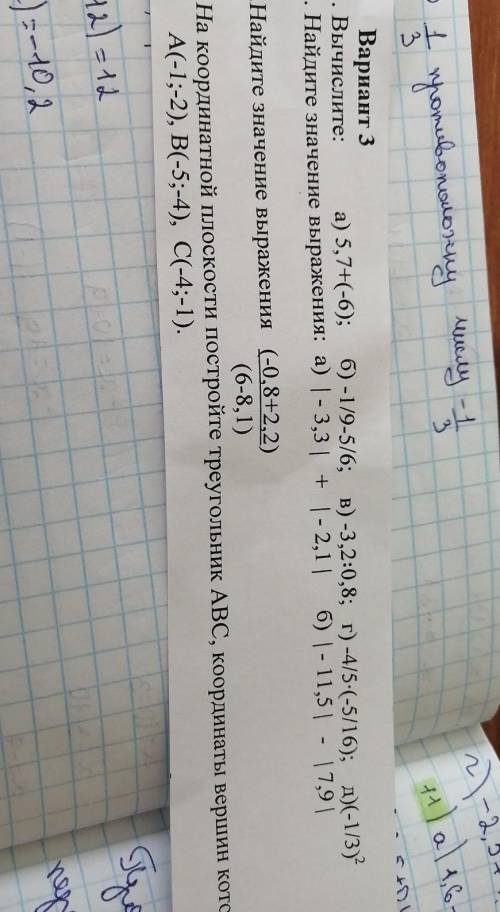 1/3 противоположну числу -1/3
Вариант 3
. Вычислите: а) 5,7+(-6); б) -1/9-5/6; в) -3,2:0,8; г) -4/5·(-5/16); д)(-1/3)²
. Найдите значение выражения: а) | - 3,3 | + | - 2,1 | б) | - 11,5 | - | 7,9 |
Найдите значение выражения (-0,8+2,2)
(6-8,1)
На координатной плоскости постройте треугольник АВС, координаты вершин кото
А(-1;-2), В(-5;-4), С(-4;-1).
12) = 12
) = -10,2
г) -2,5
11) а) 1,6-